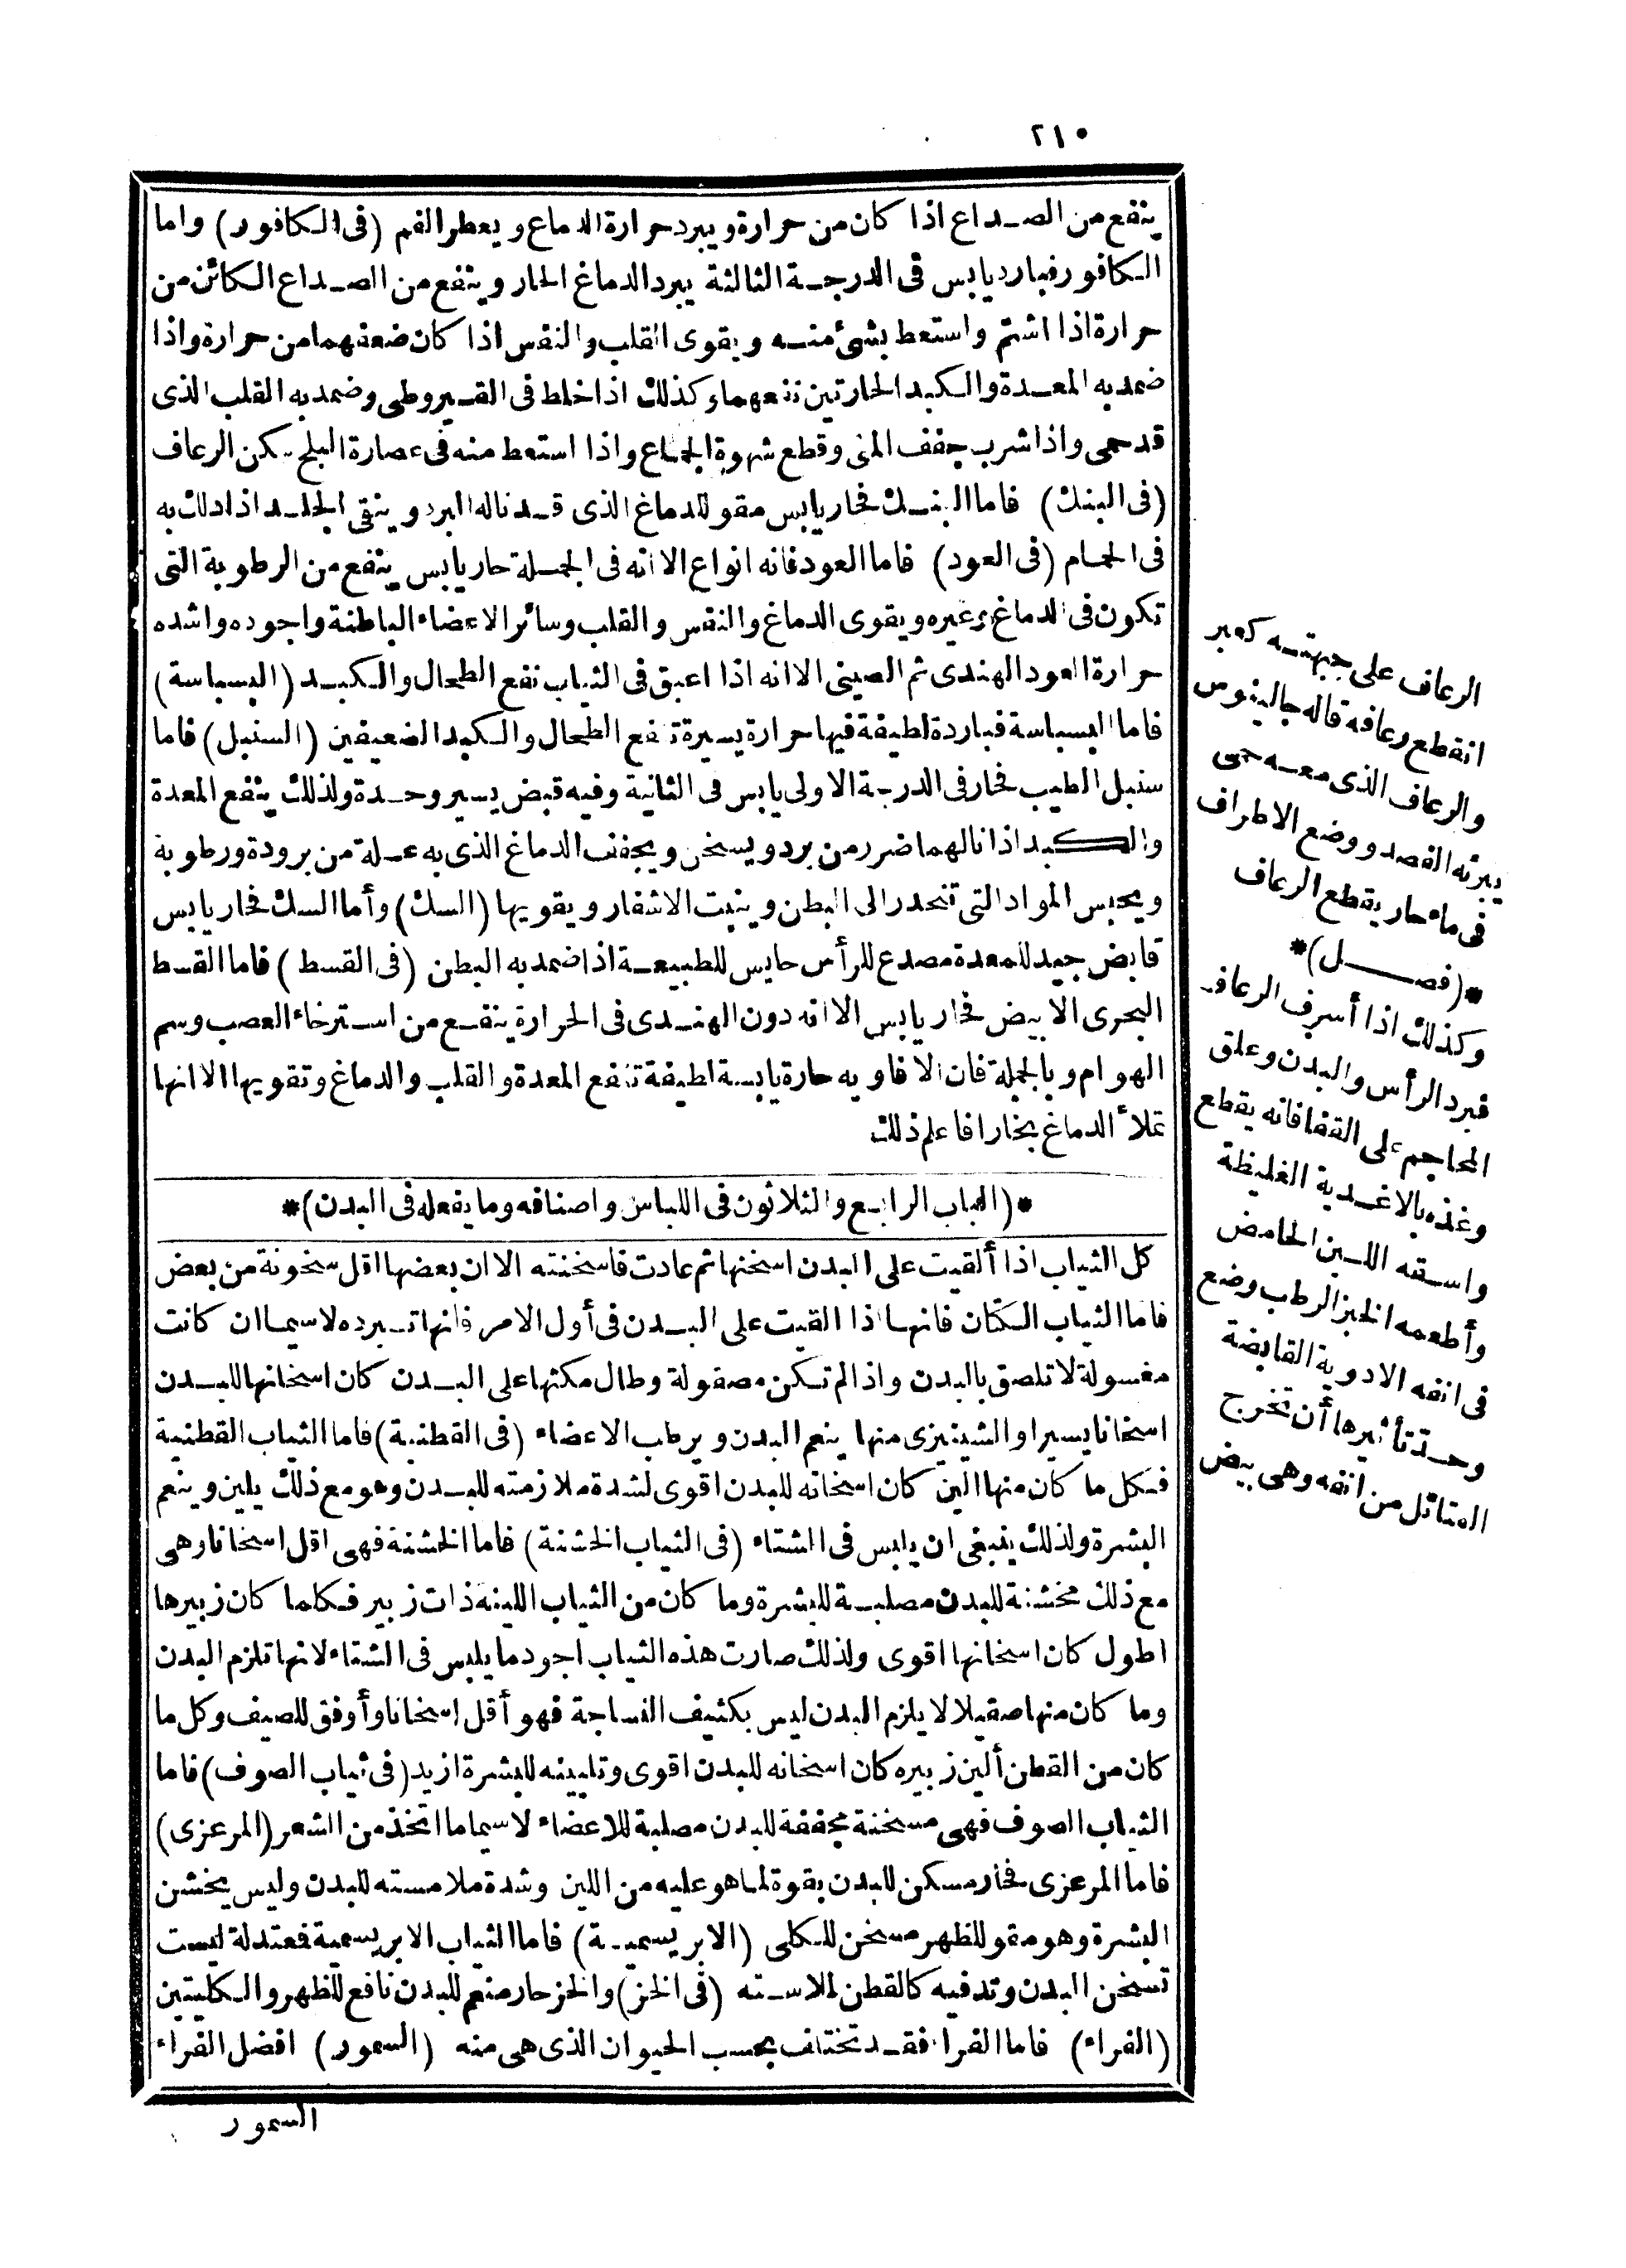 ٢١٠
ينفع من الصداع اذا كان من حرارة ويبرد حرارة الدماغ ويعطر الفم (فى الكافور) واما
الكافور فبارد يابس فى الدرجة الثالثة يبرد الدماغ الحار وينفع من الصداع الكائن من
حرارة اذا اشتم واستعط بشئ منه ويقوى القلب والنفس اذا كان ضعفهما من حرارة واذا
ضمد به المعدة والكبد الحارتين نفعهما وكذلك اذا خلط فى القيروطى وضمد به القلب الذى
قد حمى واذا شرب جفف المنى وقطع شهوة الجماع واذا استعط منه فى عصارة البلح سكن الرعاف
(فى البنك) فاما البنك فحار يابس مقو للدماغ الذى قد ناله البرد وينقى الجلد اذا دلك به
فى الحمام (فى العود) فاما العود فانه انواع الا انه فى الجملة حار يابس ينفع من الرطوبة التى
تكون فى الدماغ وغيره ويقوى الدماغ والنفس والقلب وسائر الاعضاء الباطنة واجوده واشده
حرارة العود الهندى ثم الصينى الا انه اذا اعبق فى الثياب نفع الطحال والكبد (البسباسة)
فاما البسباسة فباردة لطيفة فيها حرارة يسيرة تنفع الطحال والكبد الضعيفين (السنبل) فاما
سنبل الطيب فحار فى الدرجة الاولى يابس فى الثانية وفيه قبض يسير وحدة ولذلك ينفع المعدة
والكبد اذا نالهما ضرر من برد ويسخن ويجفف الدماغ الذى به علة من برودة ورطوبة
ويحبس المواد التى تنحدر الى البطن وينبت الاشفار ويقويها (السك) وأما السك فحار يابس
قابض جيد للمعدة مصدع للرأس حابس للطبيعة اذا ضمد به البطن (فى القسط) فاما القسط
البحرى الابيض فحار يابس الا انه دون الهندى فى الحرارة ينفع من استرخاء العصب وسم
الهوام وبالجملة فان الافاويه حارة يابسة لطيفة تنفع المعدة والقلب والدماغ وتقويها الا انها
تملأ الدماغ بخارا فاعلم ذلك
*(الباب الرابع والثلاثون فى اللباس واصنافه وما يفعله فى البدن)*
كل الثياب اذا ألقيت على البدن اسخنها ثم عادت فاسخنته الا ان بعضها اقل سخونة من بعض
فاما الثياب الكتان فانها اذا القيت على البدن فى أول الامر فانها تبرده لاسيما ان كانت
مغسولة لا تلصق بالبدن واذا لم تكن مصقولة وطال مكثها على البدن كان اسخانها للبدن
اسخانا يسيرا والشينيزى منها ينعم البدن ويرطب الاعضاء (فى القطنية) فاما الثياب القطنية
فكل ما كان منها الين كان اسخانه للبدن اقوى لشدة ملازمته للبدن وهو مع ذلك يلين وينعم
البشرة ولذلك ينبغى ان يلبس فى الشتاء (فى الثياب الخشنة) فاما الخشنة فهى اقل اسخانا وهى
مع ذلك مخشنة للبدن مصلبة للبشرة وما كان من الثياب اللينة ذات زبير فكلما كان زبيرها
اطول كان اسخانها اقوى ولذلك صارت هذه الثياب اجود ما يلبس فى الشتاء لانها تلزم البدن
وما كان منها صقيلا لا يلزم البدن ليس بكثيف النساجة فهو أقل اسخانا وأوفق للصيف وكل ما
كان من القطن ألين زبيره كان اسخانه للبدن اقوى وتليينه للبشرة ازيد (فى ثياب الصوف) فاما
الثياب الصوف فهى مسخنة مجففة للبدن مصلبة للاعضاء لاسيما ما اتخذ من الشعر (المرعزى)
فاما المرعزى فحار مسكن للبدن بقوة لما هو عليه من اللين وشدة ملامسته للبدن وليس يخشن
البشرة وهو مقو للظهر مسخن للكلى (الابريسمية) فاما الثياب الابريسمية فمعتدلة ليست
تسخن البدن وتدفيه كالقطن لملاسته (فى الخز) والخز حار منعم للبدن نافع للظهر والكليتين
(الفراء) فاما الفراء فقد تختلف بحسب الحيوان الذى هى منه (السمور) افضل الفراء
السمور
الرعاف على جبهته كعبر
انقطع رعافه قاله جالينوس
والرعاف الذى معه حمى
يبرئه الفصد ووضع الاطراف
فى ماء حار يقطع الرعاف
*(فصل)*
وكذلك اذا أسرف الرعاف
فبرد الرأس والبدن وعلق
المحاجم على القفا فانه يقطع
وغذه بالاغدية الغليظة
واسقه اللبن الحامض
وأطعمه الخبز الرطب وضع
فى انفه الادوية القابضة
وحدة تأثيرها أن تخرج
الفتائل من انفه وهى بيض